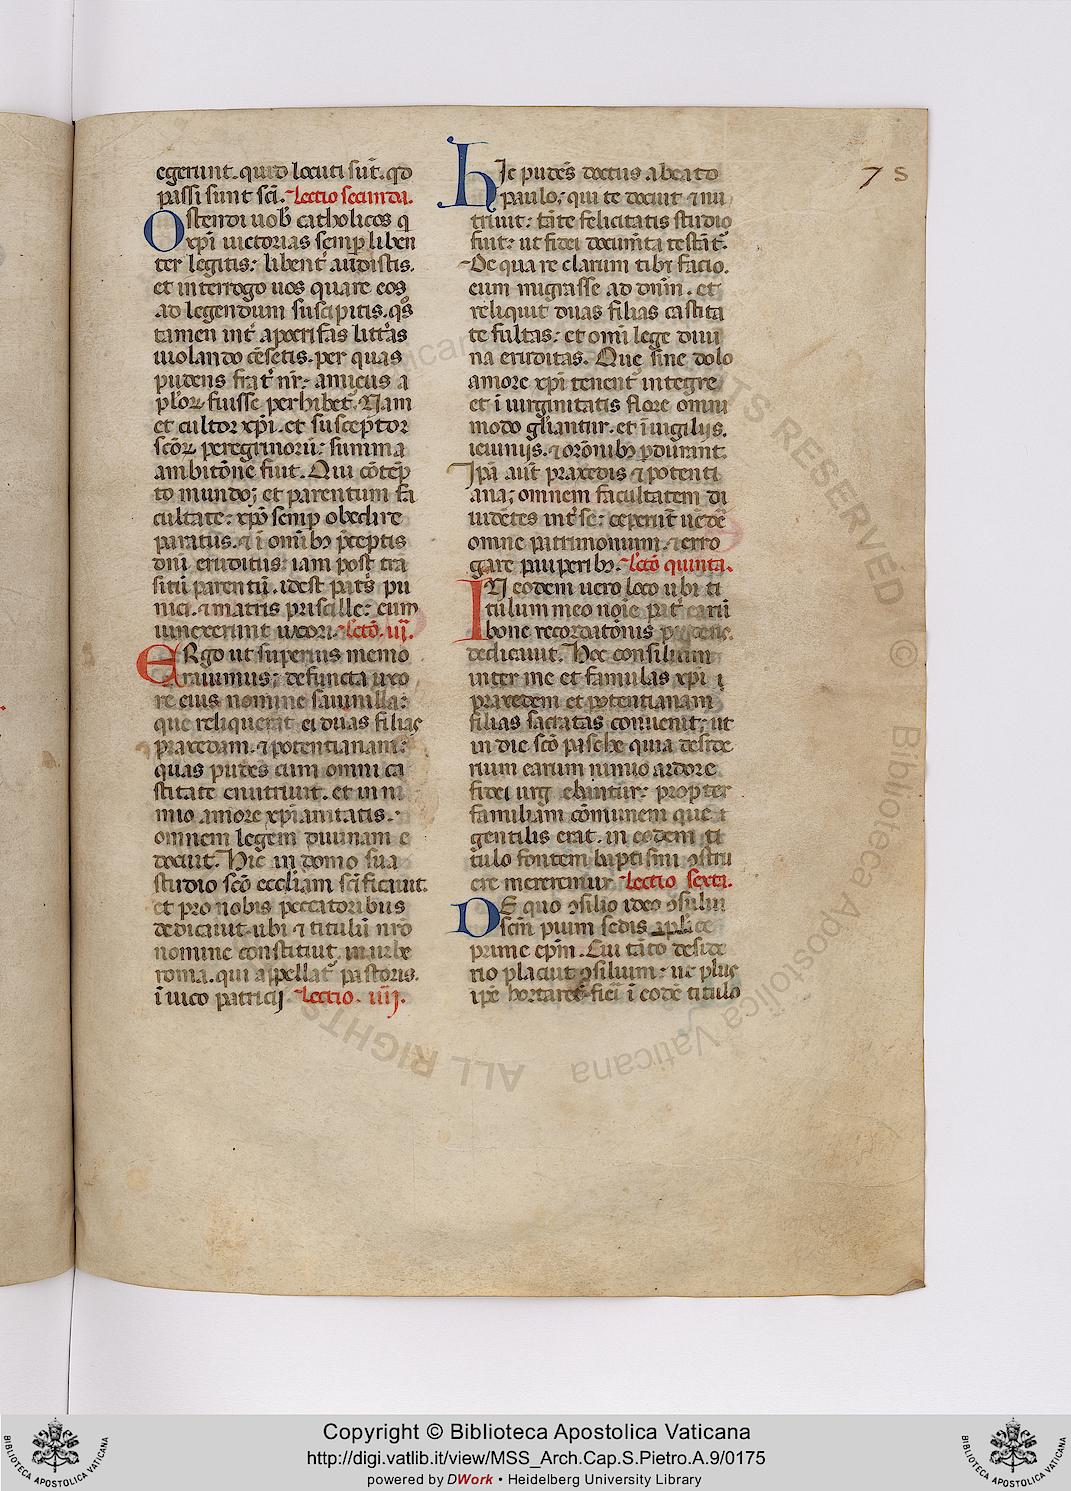 egerunt. quid locuti sūt. qd
passi sunt scī. Lectio secunda.
Ostendi uob catholicos q
xp̄i uictorias semp liben
ter legitis: libent audistis.
et interrogo uos quare eos
ad legendum suscipitis. qs
tamen int apocrifas litt̄as
uiolando cēsetis. per quas
pudens frat nr̄: amicus a
plōꝝ fuisse perhibet. Nam
et cultor xp̄i. et susceptor
scōꝝ peregrinorū: summa
ambitōne fuit. Qui cōtēp
to mundo; et parentum fa
cultate: xp̄o semp obedire
paratus. ⁊ ī omībꝫ p̄ceptis
dn̄i eruditus: iam post trā
situ parentū. idest pat̄s pu
nici. ⁊ matris priscille: eum
uinxerunt uxori. Lctō. iii.
ERgo ut superius memo
rauimus; defuncta uxo
re eius nomine sauinilla:
que reliquerat ei duas filias
praxedam. ⁊ potentianam:
quas pudēs cum omni ca
stitate enutriuit. et in ni
mio amore xp̄ianitatis.
omnem legem diuinam e
docuit. Hic in domo sua
studio scō eccl̄iam scīficauit.
et pro nobis peccatoribus
dedicauit. ubi ⁊ titulū nrō
nomine constituit. in urbe
roma. qui appellat pastoris.
ī uico patricij. Lectio. iiij.
hIc pudēs doctus a beato
paulo; qui te docuit ⁊ nu
triuit: tāte felicitatis studio
fuit: ut fidei documta testāt.
De qua re clarum tibi facio.
eum migrasse ad dn̄m. et
reliquit duas filias castita
te fultas: et omī lege diui
na eruditas. Que sine dolo
amore xp̄i tenent integre
et ī uirginitatis flore omni
modo glīantur. et ī uigilijs.
ieiunijs. ⁊ orōnibꝫ pdurant.
Ipā aut praxedis ⁊ potenti
ana; omnem facultatem di
uidētes int se: ceperūt uēdē
omne patrimonium. ⁊ erro
gare pauperibꝫ. Lctō quinta.
IN eodem uero loco ubi ti
tulum meo noīe pat earū
bone recordatōnis pudens.
dedicauit. Hec consilium
inter me et famulas xp̄i
praxedem et potentianam
filias sacratas conuenit; ut
in die scō pasche quia deside
rium earum nimio ardore
fidei urgebantur: propter
familiam cōmunem que
gentilis erat. in eodem ti
tulo fontem baptismi ꝯstru
ere meremur. Lectio sexta.
DE quo ꝯsilio ideo ꝯsului
scm̄ pium sedis aplīce
prime epm̄. Cui tāto deside
rio placuit ꝯsilium: ut plus
ipē hortaret fieri ī eodē titulo
7 S
ALL RIGHTS RESERVED © Biblioteca Apostolica Vaticana
BIBLIOTECA APOSTOLICA VATICANA
Copyright © Biblioteca Apostolica Vaticana
http://digi.vatlib.it/view/MSS_Arch.Cap.S.Pietro.A.9/0175
powered by DWork • Heidelberg University Library
BIBLIOTECA APOSTOLICA VATICANA